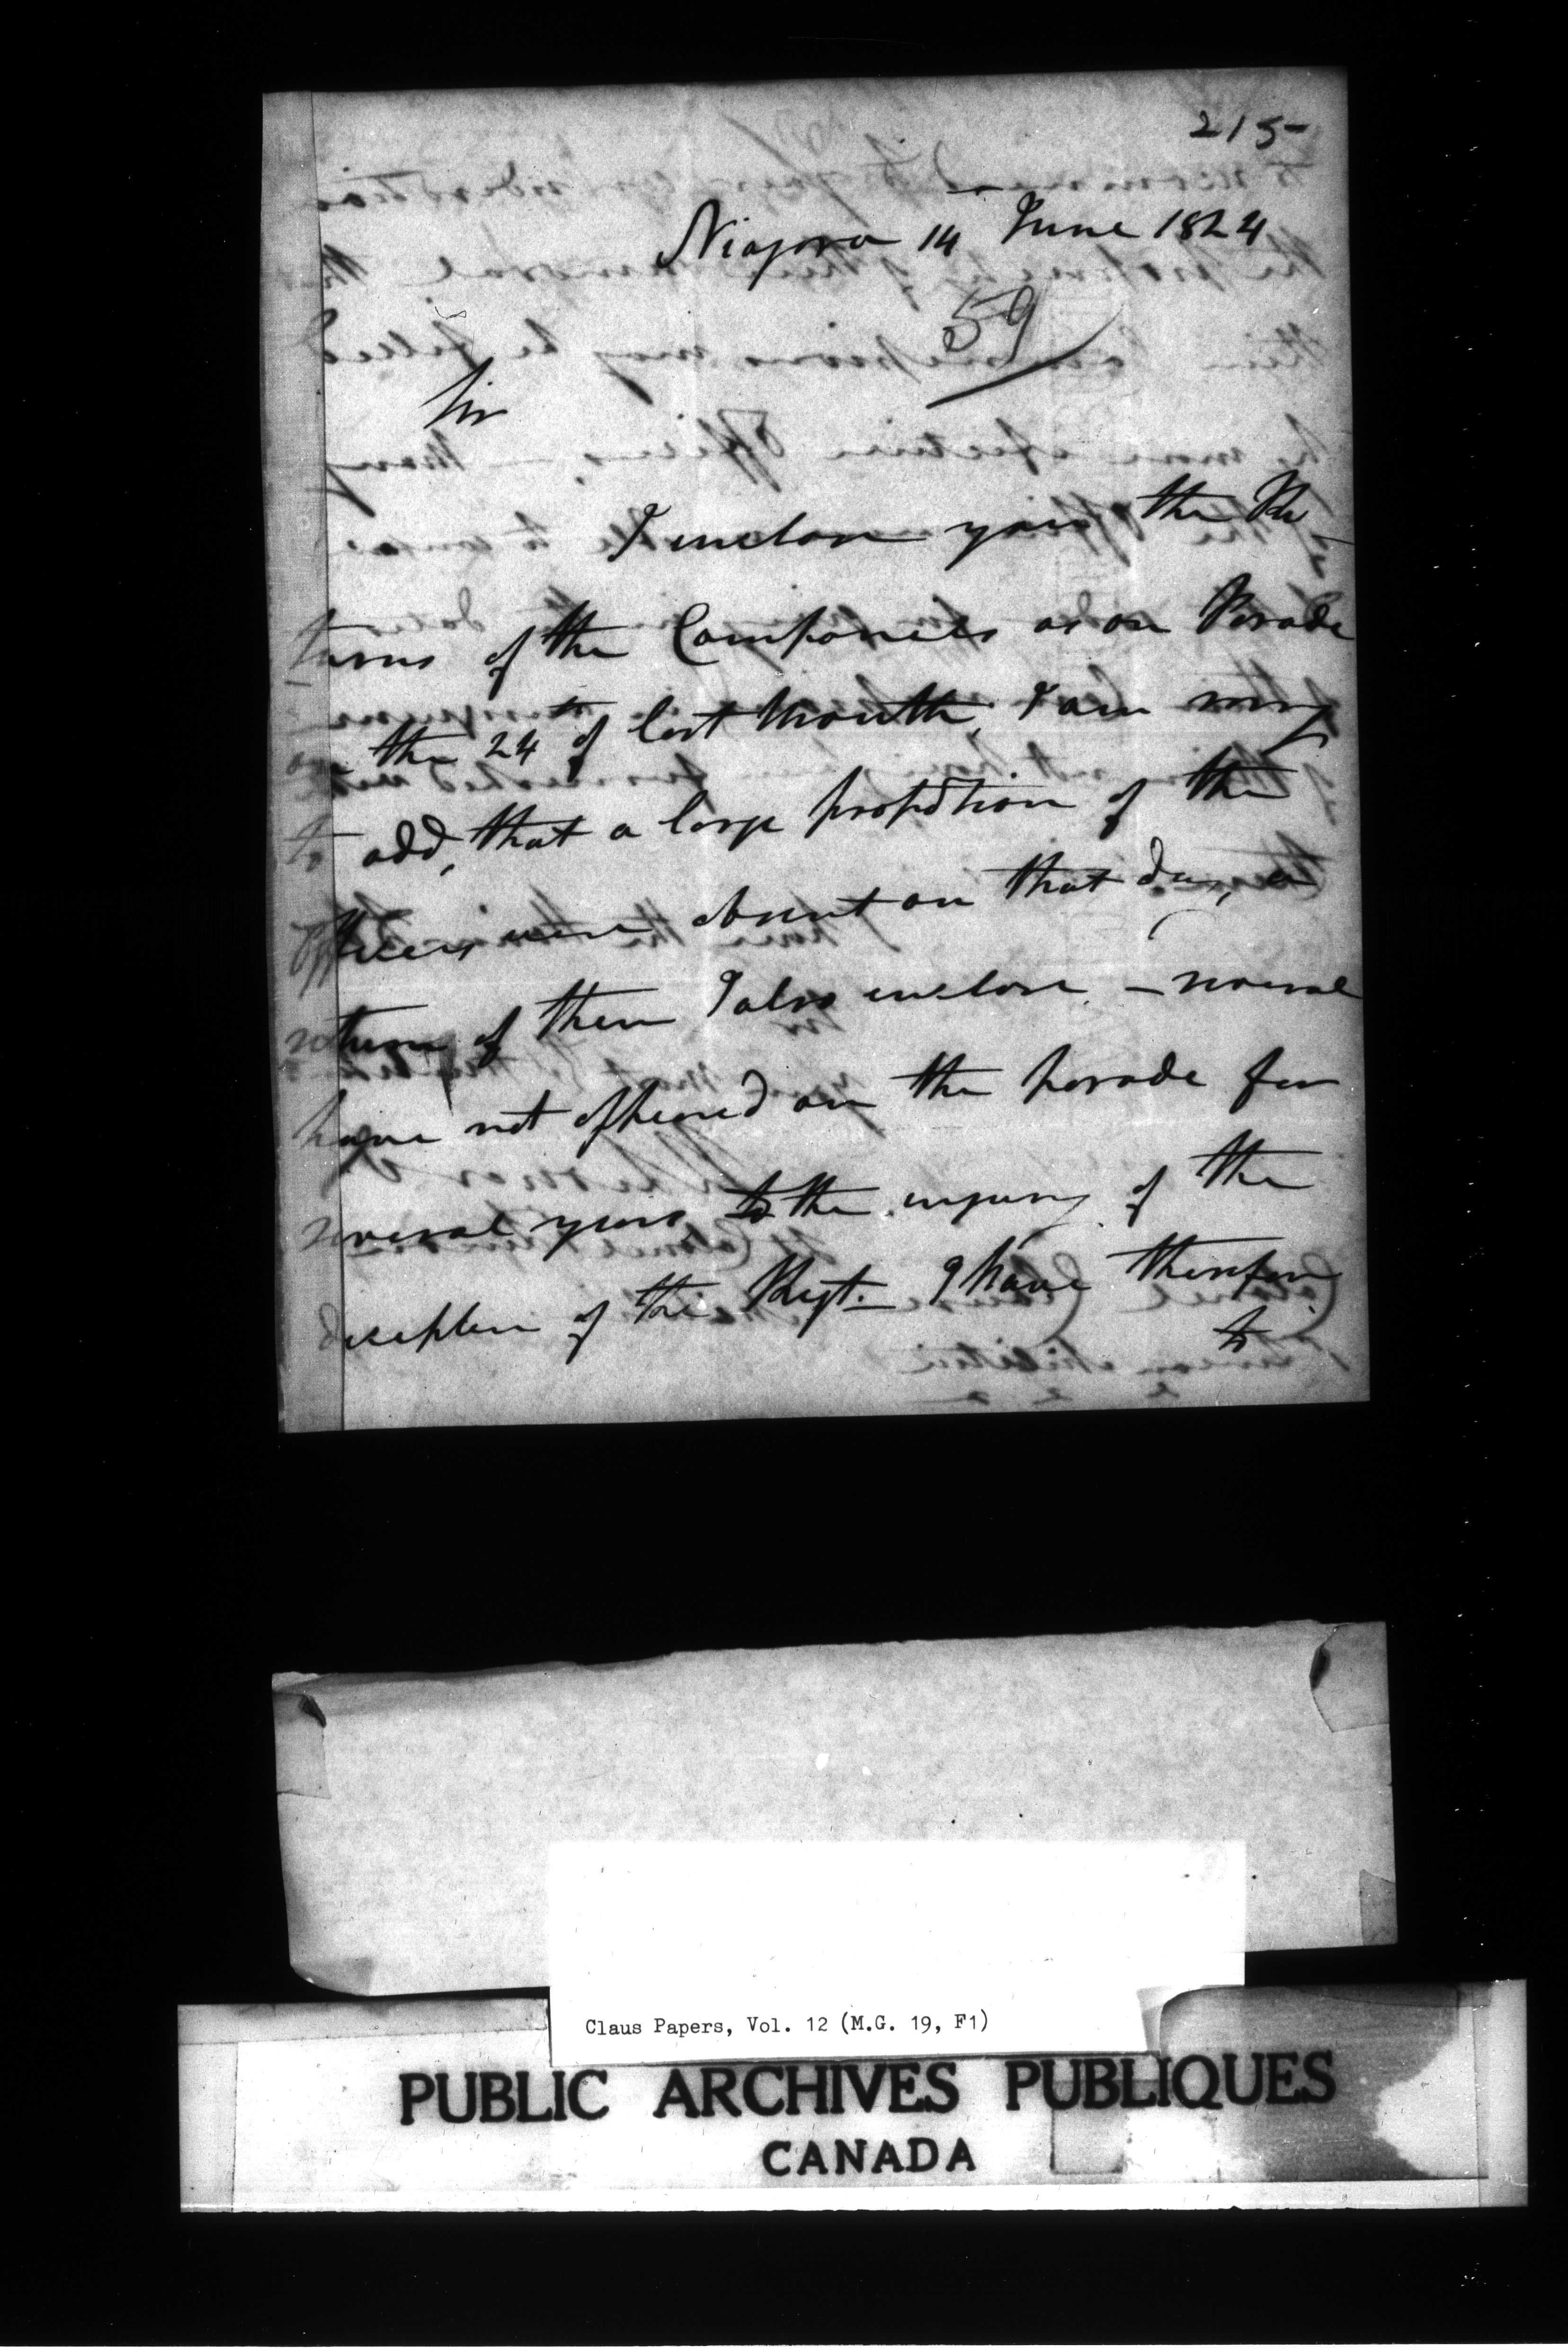 215-
Niagara 14 June 1824
59
Sir
I inclose you the Re
turns of the Companies as on Parade
on the 24th of last Month, I am sorry
to add, that a large proportion of the
Officers were absent on that day, a
return of them I also inclose - several
have not appeared on the parade for
several years to the injury of the
discipline of the Regt. I have therefore
to
Claus Papers, Vol. 12 (M.G. 19, F1)
PUBLIC ARCHIVES PUBLIQUES
CANADA